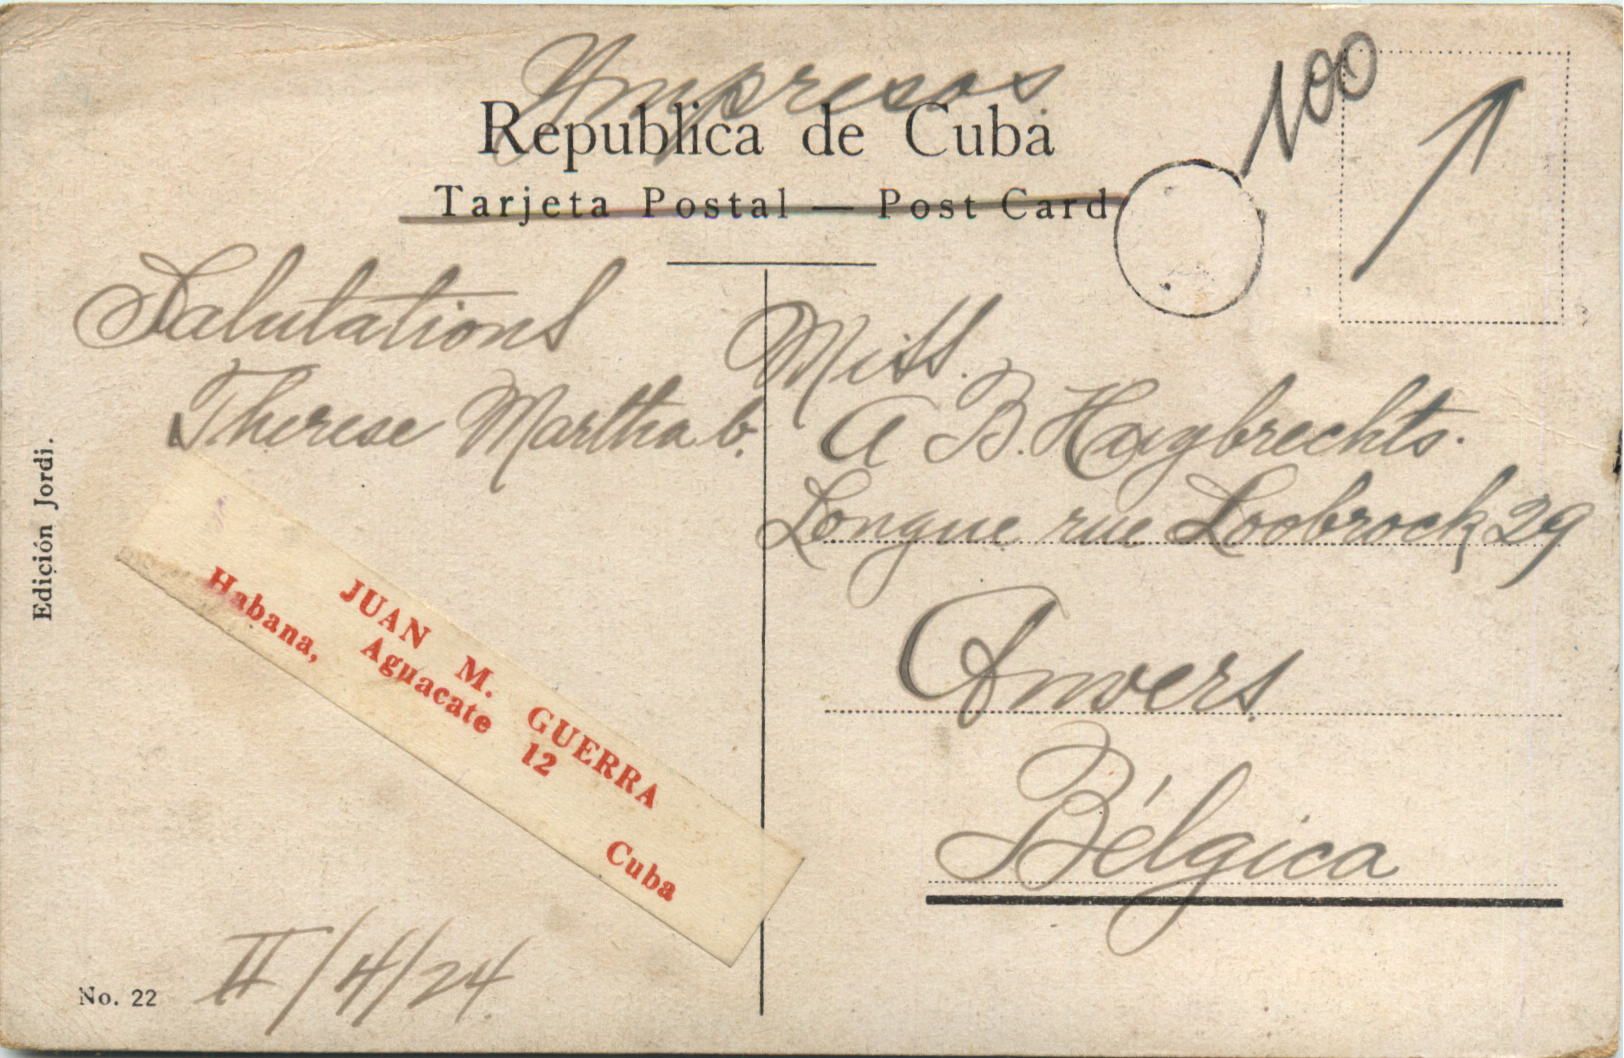 Impresos
100
Republica de Cuba
Tarjeta Postal — Post Card
Salutations
Therese Martha b.
Miss.
A B. Huybrechts.
Longue rue Loobrock 29
Anvers.
Bélgica
Edición Jordi.
JUAN M. GUERRA
Aguacate 12
Habana, Cuba
II/4/24.
No. 22